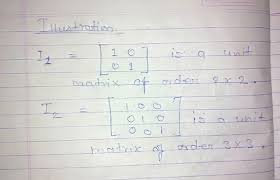 Illustration
I₁ = [1 0
0 1] is a unit
matrix of order 2x2.
I₂ = [1 0 0
0 1 0
0 0 1] is a unit
matrix of order 3x3.